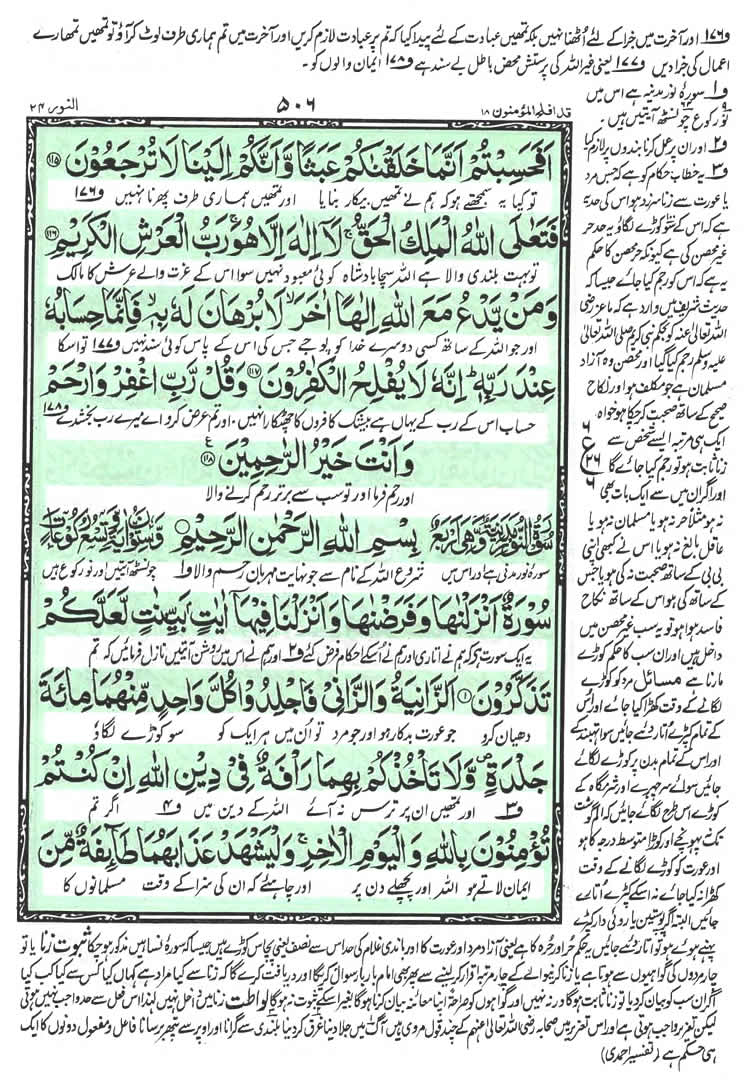 و۱۷۶ اور آخرت میں جزا کے لئے اُٹھنا نہیں بلکہ تمھیں عبادت کے لئے پیدا کیا کہ تم پر عبادت لازم کریں اور آخرت میں تم ہماری طرف لوٹ کر آؤ تو تمھیں تمھارے
اعمال کی جزا دیں و۱۷۷ یعنی غیر اللہ کی پرستش محض باطل بے سند ہے و۱۷۸ ایمان والوں کو۔
قد افلح المؤمنون ۱۸
۵۰۶
النور ۲۴
اَفَحَسِبْتُمْ اَنَّمَا خَلَقْنٰكُمْ عَبَثًا وَّاَنَّكُمْ اِلَيْنَا لَا تُرْجَعُوْنَ ۱۱۵
تو کیا یہ سمجھتے ہو کہ ہم نے تمھیں بیکار بنایا اور تمھیں ہماری طرف پھرنا نہیں و۱۷۶
فَتَعٰلَى اللّٰهُ الْمَلِكُ الْحَقُّ ۚ لَآ اِلٰهَ اِلَّا هُوَ ۚ رَبُّ الْعَرْشِ الْكَرِيْمِ ۱۱۶
تو بہت بلندی والا ہے اللہ سچا بادشاہ کوئی معبود نہیں سوا اس کے عزت والے عرش کا مالک
وَمَنْ يَّدْعُ مَعَ اللّٰهِ اِلٰهًا اٰخَرَ ۙ لَا بُرْهَانَ لَهٗ بِهٖ ۙ فَاِنَّمَا حِسَابُهٗ
اور جو اللہ کے ساتھ کسی دوسرے خدا کو پوجے جس کی اس کے پاس کوئی سند نہیں و۱۷۷ تو اسکا
عِنْدَ رَبِّهٖ ؕ اِنَّهٗ لَا يُفْلِحُ الْكٰفِرُوْنَ ۱۱۷ وَقُلْ رَّبِّ اغْفِرْ وَارْحَمْ
حساب اس کے رب کے یہاں ہے بیشک کافروں کا چھٹکارا نہیں۔ اور تم عرض کرو اے میرے رب بخشدے و۱۷۸
وَاَنْتَ خَيْرُ الرّٰحِمِيْنَ ۱۱۸
اور رحم فرما اور تو سب سے برتر رحم کرنے والا
سُوْرَةُ النُّوْرِ مَدَنِيَّةٌ وَّهِيَ اَرْبَعٌ بِسْمِ اللّٰهِ الرَّحْمٰنِ الرَّحِيْمِ وَّسِتُّوْنَ اٰيَةً وَّتِسْعُ رُكُوْعَاتٍ
سورۂ نور مدنی ہے اور اس میں شروع اللہ کے نام سے جو نہایت مہربان رحم والا و۱ چونسٹھ آیتیں اور نو رکوع ہیں
سُوْرَةٌ اَنْزَلْنٰهَا وَفَرَضْنٰهَا وَاَنْزَلْنَا فِيْهَآ اٰيٰتٍۭ بَيِّنٰتٍ لَّعَلَّكُمْ
یہ ایک سورت ہے کہ ہم نے اتاری اور ہم نے اسکے احکام فرض کئے و۲ اور ہم نے اس میں روشن آیتیں نازل فرمائیں کہ تم
تَذَكَّرُوْنَ ۱ اَلزَّانِيَةُ وَالزَّانِيْ فَاجْلِدُوْا كُلَّ وَاحِدٍ مِّنْهُمَا مِائَةَ
دھیان کرو جو عورت بدکار ہو اور جو مرد تو اُن میں ہر ایک کو سو کوڑے لگاؤ
جَلْدَةٍ ۪ وَّلَا تَاْخُذْكُمْ بِهِمَا رَاْفَةٌ فِيْ دِيْنِ اللّٰهِ اِنْ كُنْتُمْ
و۳ اور تمھیں ان پر ترس نہ آئے اللہ کے دین میں و۴ اگر تم
تُؤْمِنُوْنَ بِاللّٰهِ وَالْيَوْمِ الْاٰخِرِ ۚ وَلْيَشْهَدْ عَذَابَهُمَا طَآئِفَةٌ مِّنَ
ایمان لاتے ہو اللہ اور پچھلے دن پر اور چاہئے کہ ان کی سزا کے وقت مسلمانوں کا
و۱ سورۂ نور مدنیہ ہے اس میں
نو رکوع چونسٹھ آیتیں ہیں۔
و۲ اور ان پر عمل کرنا بندوں پر لازم کیا
و۳ یہ خطاب حکام کو ہے کہ جس مرد
یا عورت سے زنا سرزد ہو اس کی حد یہ
ہے کہ اس کے سو کوڑے لگاؤ یہ حد حر
غیر محصن کی ہے کیونکہ حر محصن کا حکم
یہ ہے کہ اس کو رجم کیا جائے جیسا کہ
حدیث شریف میں وارد ہے کہ ماعز رضی
اللہ تعالیٰ عنہ کو بحکم نبی کریم صلی اللہ تعالیٰ
علیہ وسلم رجم کیا گیا اور محصن وہ آزاد
مسلمان ہے جو مکلف ہو اور نکاح
صحیح کے ساتھ صحبت کر چکا ہو خواہ
ایک ہی مرتبہ ایسے شخص سے
زنا ثابت ہو تو رجم کیا جائے گا
اور اگر ان میں سے ایک بات بھی
نہ ہو مثلاً حر نہ ہو یا مسلمان نہ ہو یا
عاقل بالغ نہ ہو یا اس نے کبھی اپنی
بی بی کے ساتھ صحبت نہ کی ہو یا جس
کے ساتھ کی ہو اس کے ساتھ نکاح
فاسد ہوا ہو تو یہ سب غیر محصن میں
داخل ہیں اور ان سب کا حکم کوڑے
مارنا ہے مسائل مرد کو کوڑے
لگانے کے وقت کھڑا کیا جائے اور اس
کے تمام کپڑے اتار دئے جائیں سوا تہبند کے
اور اس کے تمام بدن پر کوڑے لگائے
جائیں سوائے سر چہرے اور شرمگاہ کے
کوڑے اس طرح لگائے جائیں کہ الم گوشت
تک نہ پہونچے اور کوڑا متوسط درجہ کا ہو
اور عورت کو کوڑے لگانے کے وقت
کھڑا نہ کیا جائے نہ اسکے کپڑے اُتارے
جائیں البتہ اگر پوستین یا روئی دار کپڑے
پہنے ہوئے ہو تو اتار دئے جائیں یہ حکم حر اور حرہ کا ہے یعنی آزاد مرد اور عورت کا اور باندی غلام کی حد اس سے نصف یعنی پچاس کوڑے ہیں جیسا کہ سورۂ نسا میں مذکور ہو چکا ثبوت زنا یا تو
چار مردوں کی گواہیوں سے ہوتا ہے یا زنا کرنے والے کے چار مرتبہ اقرار کر لینے سے پھر بھی امام بار بار سوال کریگا اور دریافت کرے گا کہ زنا سے کیا مراد ہے کہاں کیا کس سے کیا کب کیا
اگر ان سب کو بیان کر دیا تو زنا ثابت ہوگا ورنہ نہیں اور گواہوں کو صراحۃً اپنا معائنہ بیان کرنا ہوگا بغیر اسکے ثبوت نہ ہوگا لواطت زنا میں داخل نہیں لہٰذا اس فعل سے حد واجب نہیں ہوتی
لیکن تعزیر واجب ہوتی ہے اور اس تعزیر میں صحابہ رضی اللہ تعالیٰ عنہم کے چند قول مروی ہیں آگ میں جلا دینا غرق کر دینا بلندی سے گرانا اور اوپر سے پتھر برسانا فاعل و مفعول دونوں کا ایک
ہی حکم ہے (تفسیر احمدی)